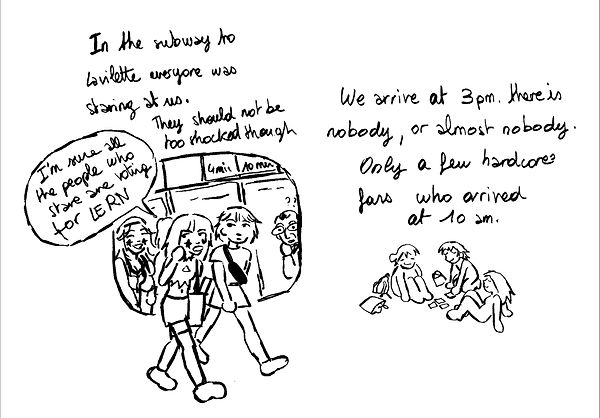 In the subway to
Lavilette everyone was
staring at us.
They should not be
too shocked though
I'm sure all
the people who
stare are voting
for LE RN
4min 10 min
??
We arrive at 3pm. there is
nobody, or almost nobody.
Only a few hardcore
fans who arrived
at 10 am.